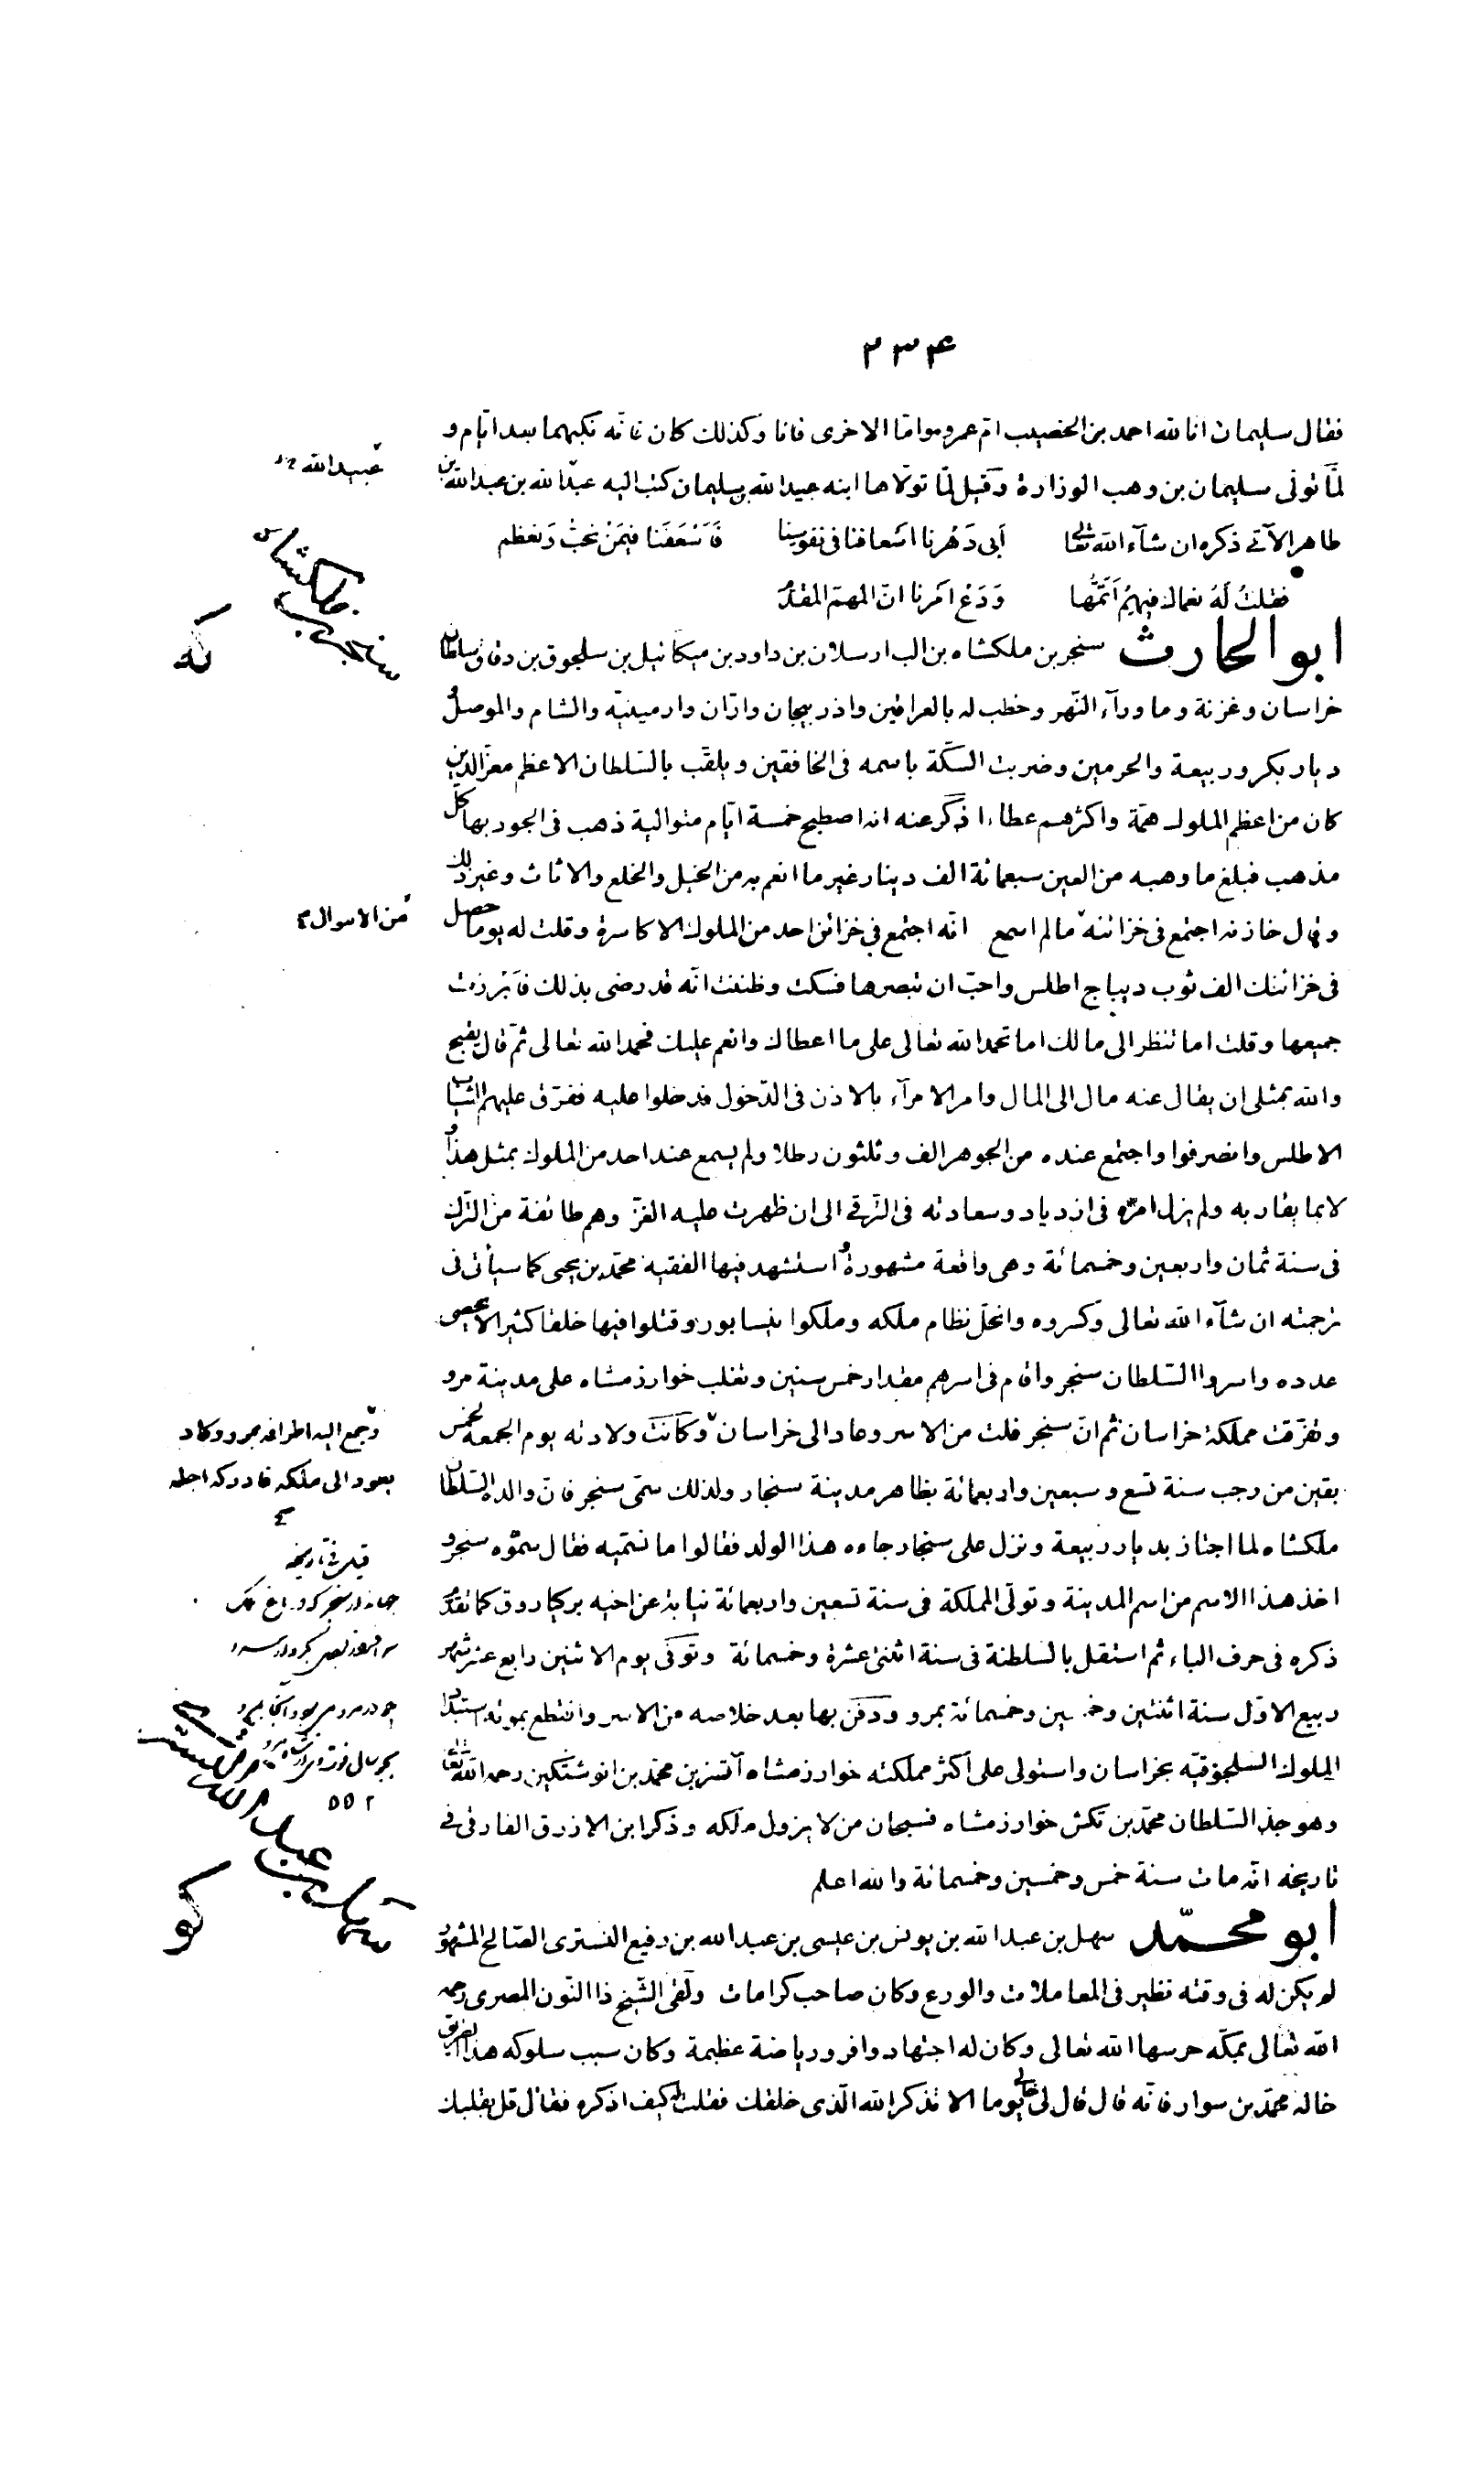 ٢٣۴
فقال سليمان انا لله احمد بن الخصيب امّ عمرو واما الاخرى فانا وكذلك كان فانّه نكبهما بعد ايّام و
لمّا تولى سليمان بن وهب الوزارة وقيل لمّا تولّاها ابنه عبيد الله بن سليمان كتب اليه عبد الله بن عبد الله بن
عبيد الله
طاهر الآتى ذكره ان شآء الله تعالى ابى دهرنا اسعافنا فى نفوسنا فاسعفنا فيمن نحبّ ونعظم
فقلت له نعماك فيهم اتمّها ودع امرنا انّ المهمّ المقدّم
سنجر بن ملكشاه
ابو الحارث سنجر بن ملكشاه بن الب ارسلان بن داود بن ميكائيل بن سلجوق بن دقاق سلطان
خراسان وغزنة وما ورآء النّهر وخطب له بالعراقين واذربيجان وارّان وارمينيّة والشام والموصل و
ديار بكر وربيعة والحرمين وضربت السكّة باسمه فى الخافقين ويلقّب بالسّلطان الاعظم معزّ الدين
كان من اعظم الملوك همّة واكثرهم عطاءا ذكر عنه انه اصطبح خمسة ايّام متوالية ذهب فى الجود بها كل
مذهب فبلغ ما وهبه من العين سبعمائة الف دينار غير ما انعم به من الخيل والخلع والاثاث وغير ذلك
وقال خازنه اجتمع فى خزائنه ما لم اسمع انّه اجتمع فى خزائن احد من الملوك الاكاسرة وقلت له يوما حصل
من الاموال
فى خزائنك الف ثوب ديباج اطلس واحبّ ان تبصرها فسكت وظننت انّه قد رضى بذلك فابرزت
جميعها وقلت اما تنظر الى مالك اما تحمد الله تعالى على ما اعطاك وانعم عليك فحمد الله تعالى ثمّ قال يقبح
والله بمثلى ان يقال عنه مال الى المال وامر الامرآء بالاذن فى الدّخول فدخلوا عليه ففرّق عليهم الثياب
الاطلس وانصرفوا واجتمع عنده من الجوهر الف وثلثون رطلا ولم يسمع عند احد من الملوك بمثل هذا و
لا بما يقاربه ولم يزل امره فى ازدياد وسعادته فى التّرقى الى ان ظهرت عليه الغزّ وهم طائفة من التّرك
فى سنة ثمان واربعين وخمسمائة وهى واقعة مشهورة استشهد فيها الفقيه محمّد بن يحيى كما سيأتى فى
ترجمته ان شآء الله تعالى وكسروه وانحلّ نظام ملكه وملكوا نيسابور وقتلوا فيها خلقا كثيرا لا يحصى
عدده واسروا السّلطان سنجر واقام فى اسرهم مقدار خمس سنين وتغلب خوارزمشاه على مدينة مرو
وتفرّقت مملكة خراسان ثم انّ سنجر فلت من الاسر وعاد الى خراسان وكانت ولادته يوم الجمعة لخمس
وجمع اليه اطرافه بمرو وكاد
يعود الى ملكه فادركه اجله
بقين من رجب سنة تسع وسبعين واربعمائة بظاهر مدينة سنجار ولذلك سمّى سنجر فانّ والده السّلطان
ملكشاه لما اجتاز بديار ربيعة ونزل على سنجار جاءه هذا الولد فقالوا ما نسمّيه فقال سمّوه سنجر و
قيل فى تاريخه
اخذ هذا الاسم من اسم المدينة وتولّى المملكة فى سنة تسعين واربعمائة نيابة عن اخيه بركياروق كما تقدّم
ذكره فى حرف الباء ثم استقل بالسلطنة فى سنة اثنتى عشرة وخمسمائة وتوفّى يوم الاثنين رابع عشر شهر
ربيع الاوّل سنة اثنتين وخمسين وخمسمائة بمرو ودفن بها بعد خلاصه من الاسر وانقطع بموته استبداد
الملوك السلجوقيّه بخراسان واستولى على اكثر مملكته خوارزمشاه آتسز بن محمّد بن انوشتكين رحمه الله تعالى
٥٥٢
وهو جدّ السّلطان محمّد بن تكش خوارزمشاه فسبحان من لا يزول ملكه وذكر ابن الازرق الفارقى فى
تاريخه انّه مات سنة خمس وخمسين وخمسمائة والله اعلم
سهل بن عبد الله التسترى
ابو محمّد سهل بن عبد الله بن يونس بن عيسى بن عبد الله بن رفيع التسترى الصّالح المشهور
لم يكن له فى وقته نظير فى المعاملات والورع وكان صاحب كرامات ولقى الشّيخ ذا النّون المصرى رحمه
الله تعالى بمكّه حرسها الله تعالى وكان له اجتهاد وافر ورياضة عظيمة وكان سبب سلوكه هذا الطريق
خاله محمّد بن سوار فانّه قال قال لى خالى يوما الا تذكر الله الّذى خلقك فقلت له كيف اذكره فقال قل بقلبك